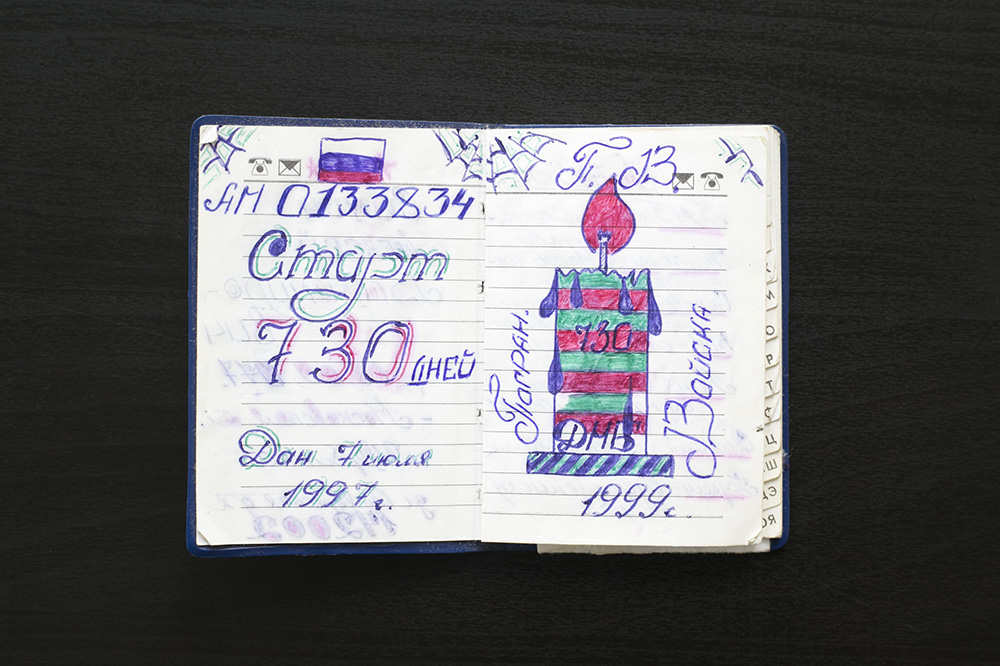 АМ 0133834
Старт
730
дней
Дан 7 июля
1997 г.
П. В.
Погран.
Войска
730
ДМБ
1999 г.